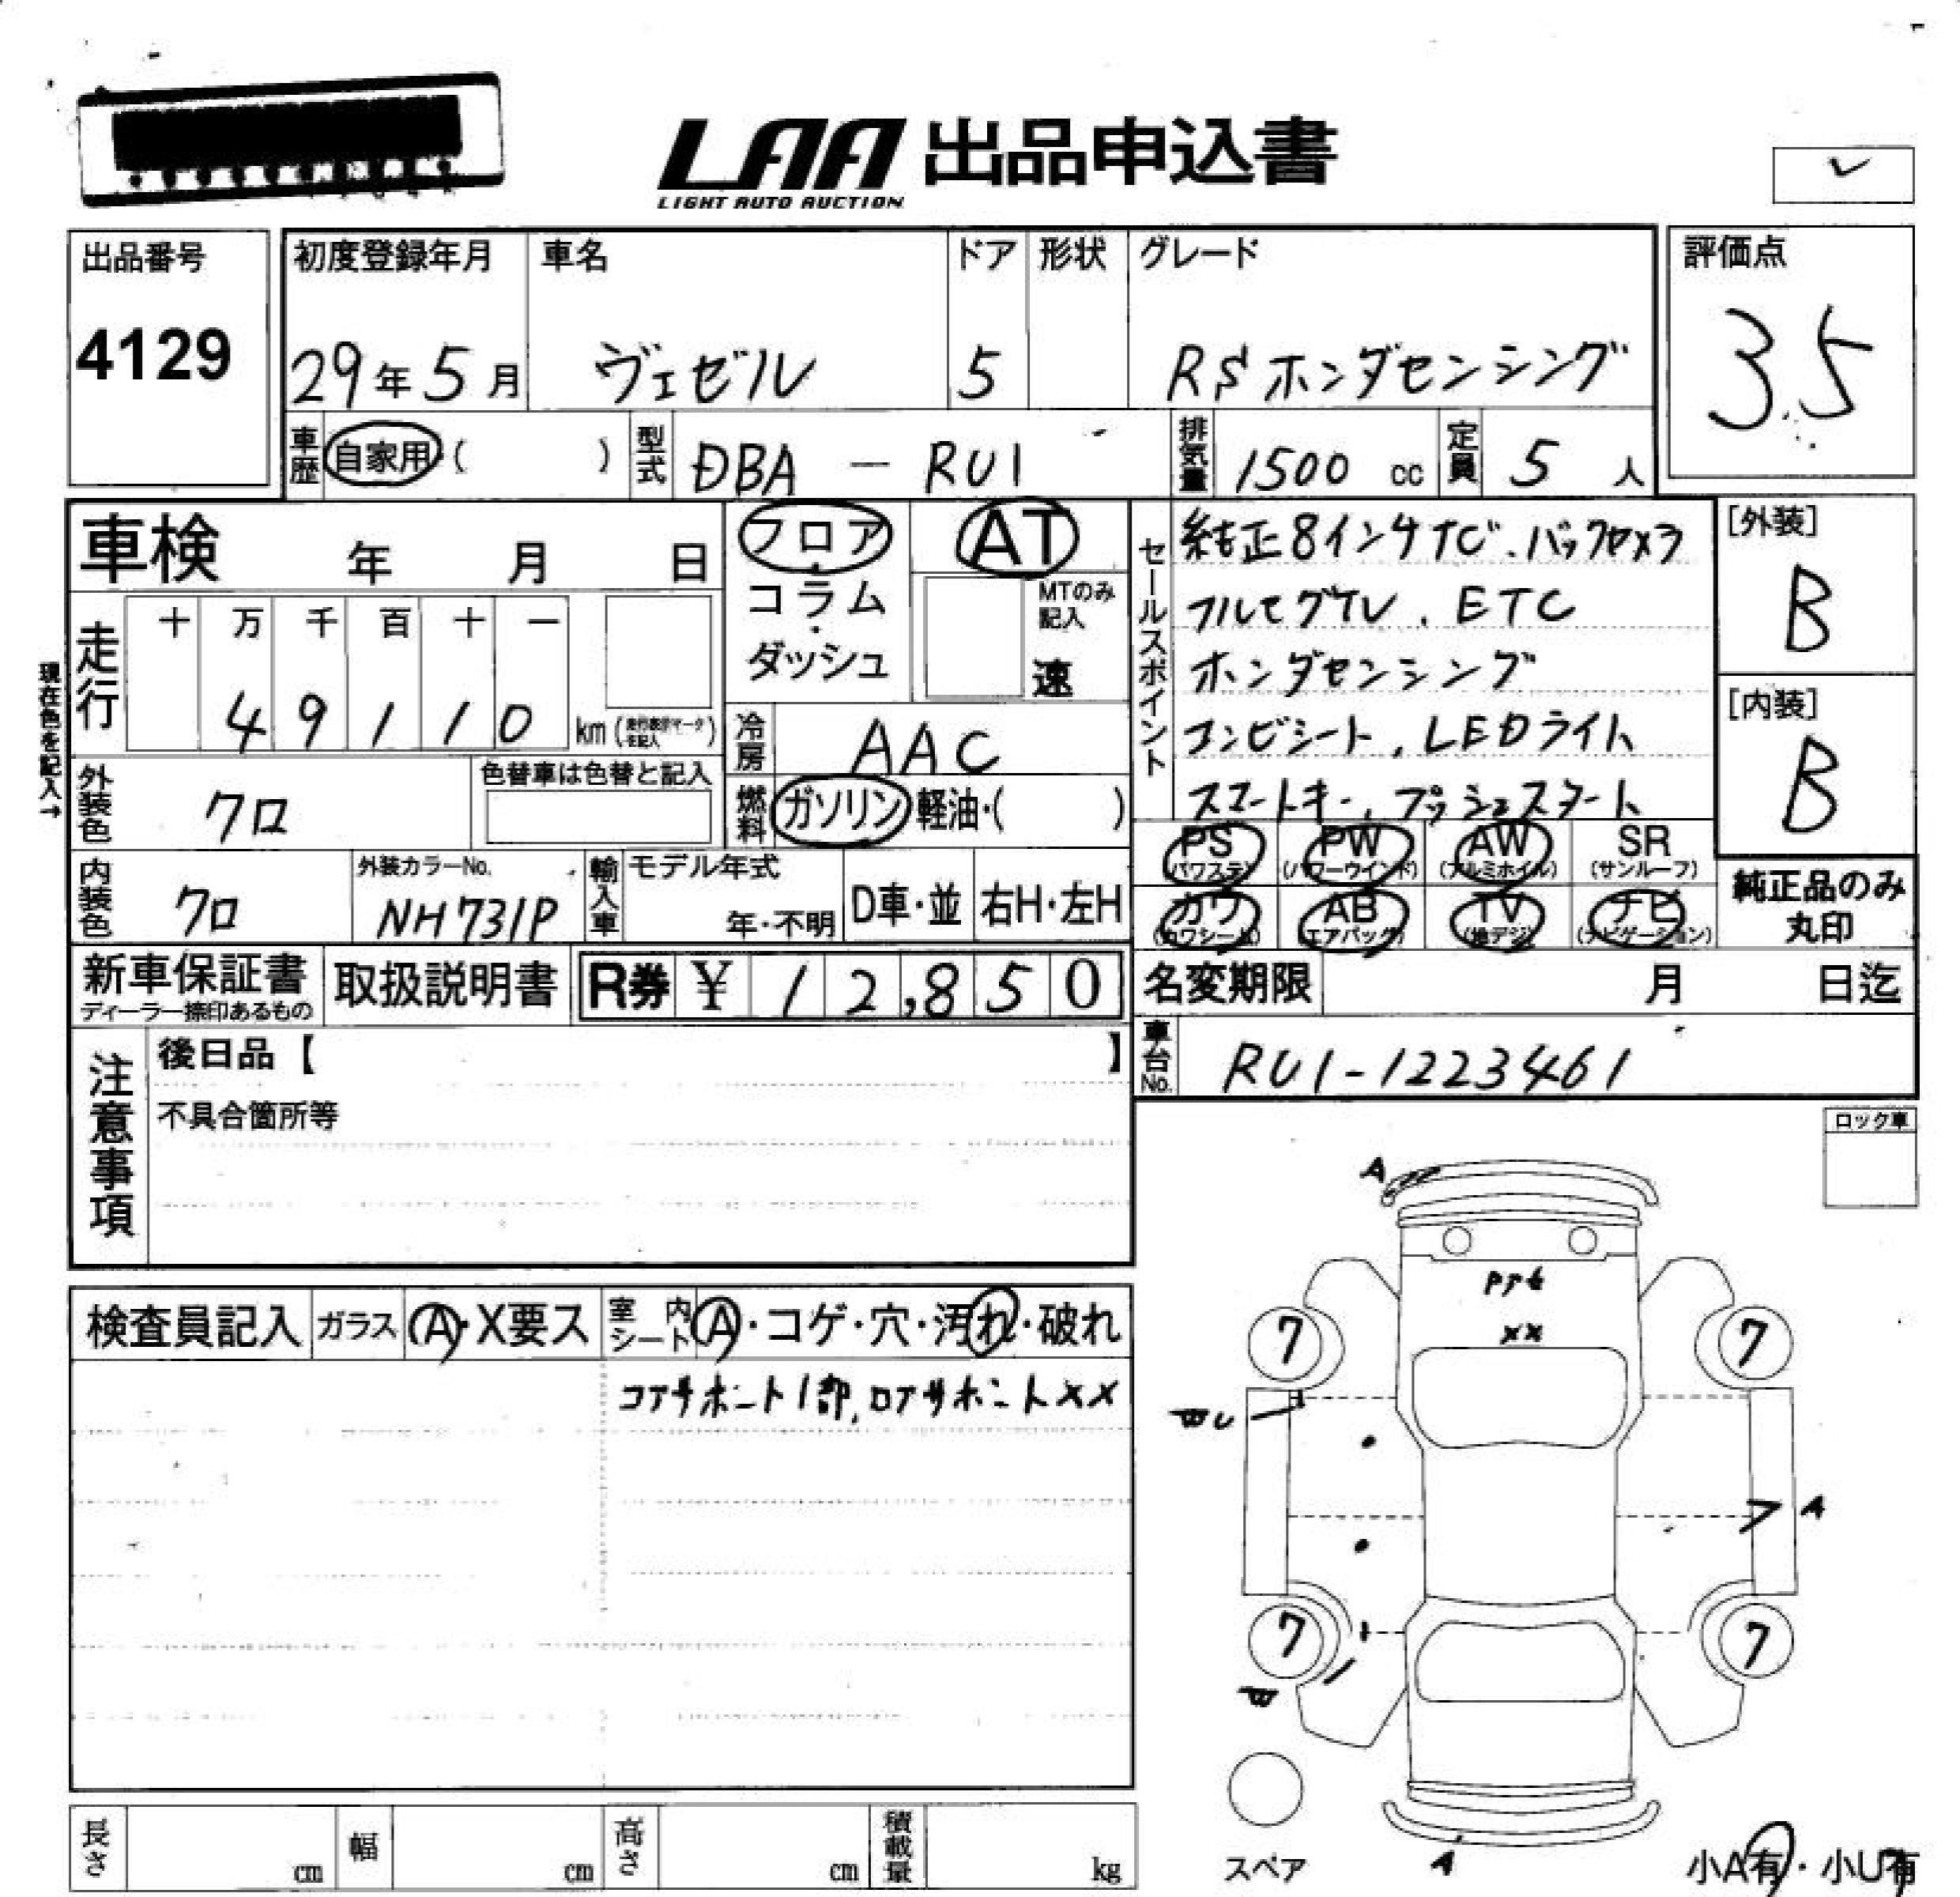 LAA 出品申込書
LIGHT AUTO AUCTION
出品番号
4129
初度登録年月 車名 ドア 形状 グレード
29年5月 ヴェゼル 5 RSホンダセンシング
評価点
3.5
車歴 自家用( ) 型式 DBA－RU1 排気量 1500 cc 定員 5 人
車検 年 月 日
フロア・コラム・ダッシュ
AT
MTのみ記入
速
セールスポイント
純正8インチナビ.バックカメラ
フルセグTV.ETC
ホンダセンシング
コンビシート,LEDライト
スマートキー,プッシュスタート
[外装]
B
[内装]
B
現在色を記入→
走行 十 万 千 百 十 一
49110 km(走行表示マークを記入)
冷房 AAC
外装色 クロ 色替車は色替と記入
燃料 ガソリン・軽油・( )
PS(パワステ) PW(パワーウインド) AW(アルミホイル) SR(サンルーフ)
カワ(カワシート) AB(エアバッグ) TV(地デジ) ナビ(ナビゲーション)
純正品のみ丸印
内装色 クロ 外装カラーNo. NH731P 輸入車 モデル年式 年・不明 D車・並 右H・左H
新車保証書 ディーラー捺印あるもの 取扱説明書 R券 ¥12,850
名変期限 月 日迄
車台No. RU1-1223461
注意事項
後日品【 】
不具合箇所等
ロック車
検査員記入 ガラス A・X要ス 室内シート A・コゲ・穴・汚れ・破れ
コアサポート1部,ロアサポートXX
A
XX
7 7
WU
A
7 7
W
A
スペア
小A有・小U有
長さ cm 幅 cm 高さ cm 積載量 kg